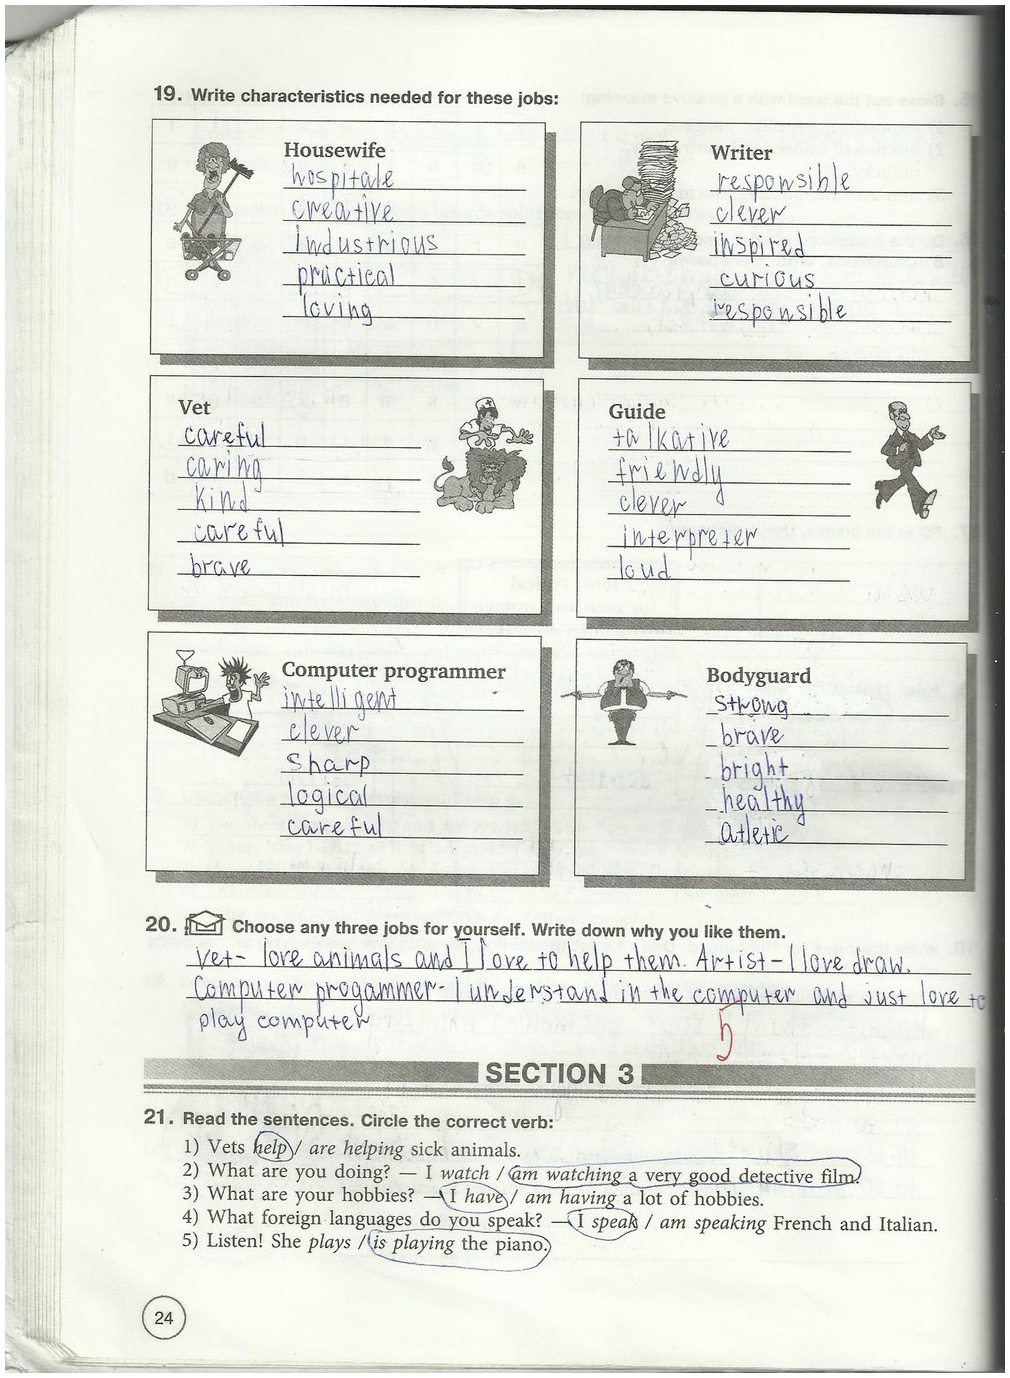 19. Write characteristics needed for these jobs:
Housewife
hospitale
creative
industrious
practical
loving
Writer
responsible
clever
inspired
curious
responsible
Vet
careful
caring
kind
careful
brave
Guide
talkative
friendly
clever
interpreter
loud
Computer programmer
intelligent
clever
sharp
logical
careful
Bodyguard
strong
brave
bright
healthy
atletic
20. Choose any three jobs for yourself. Write down why you like them.
Vet- love animals and I love to help them. Artist - I love draw.
Computer progammer- I understand in the computer and just love to
play computer
5
SECTION 3
21. Read the sentences. Circle the correct verb:
1) Vets help / are helping sick animals.
2) What are you doing? — I watch / am watching a very good detective film.
3) What are your hobbies? — I have / am having a lot of hobbies.
4) What foreign languages do you speak? — I speak / am speaking French and Italian.
5) Listen! She plays / is playing the piano.
24